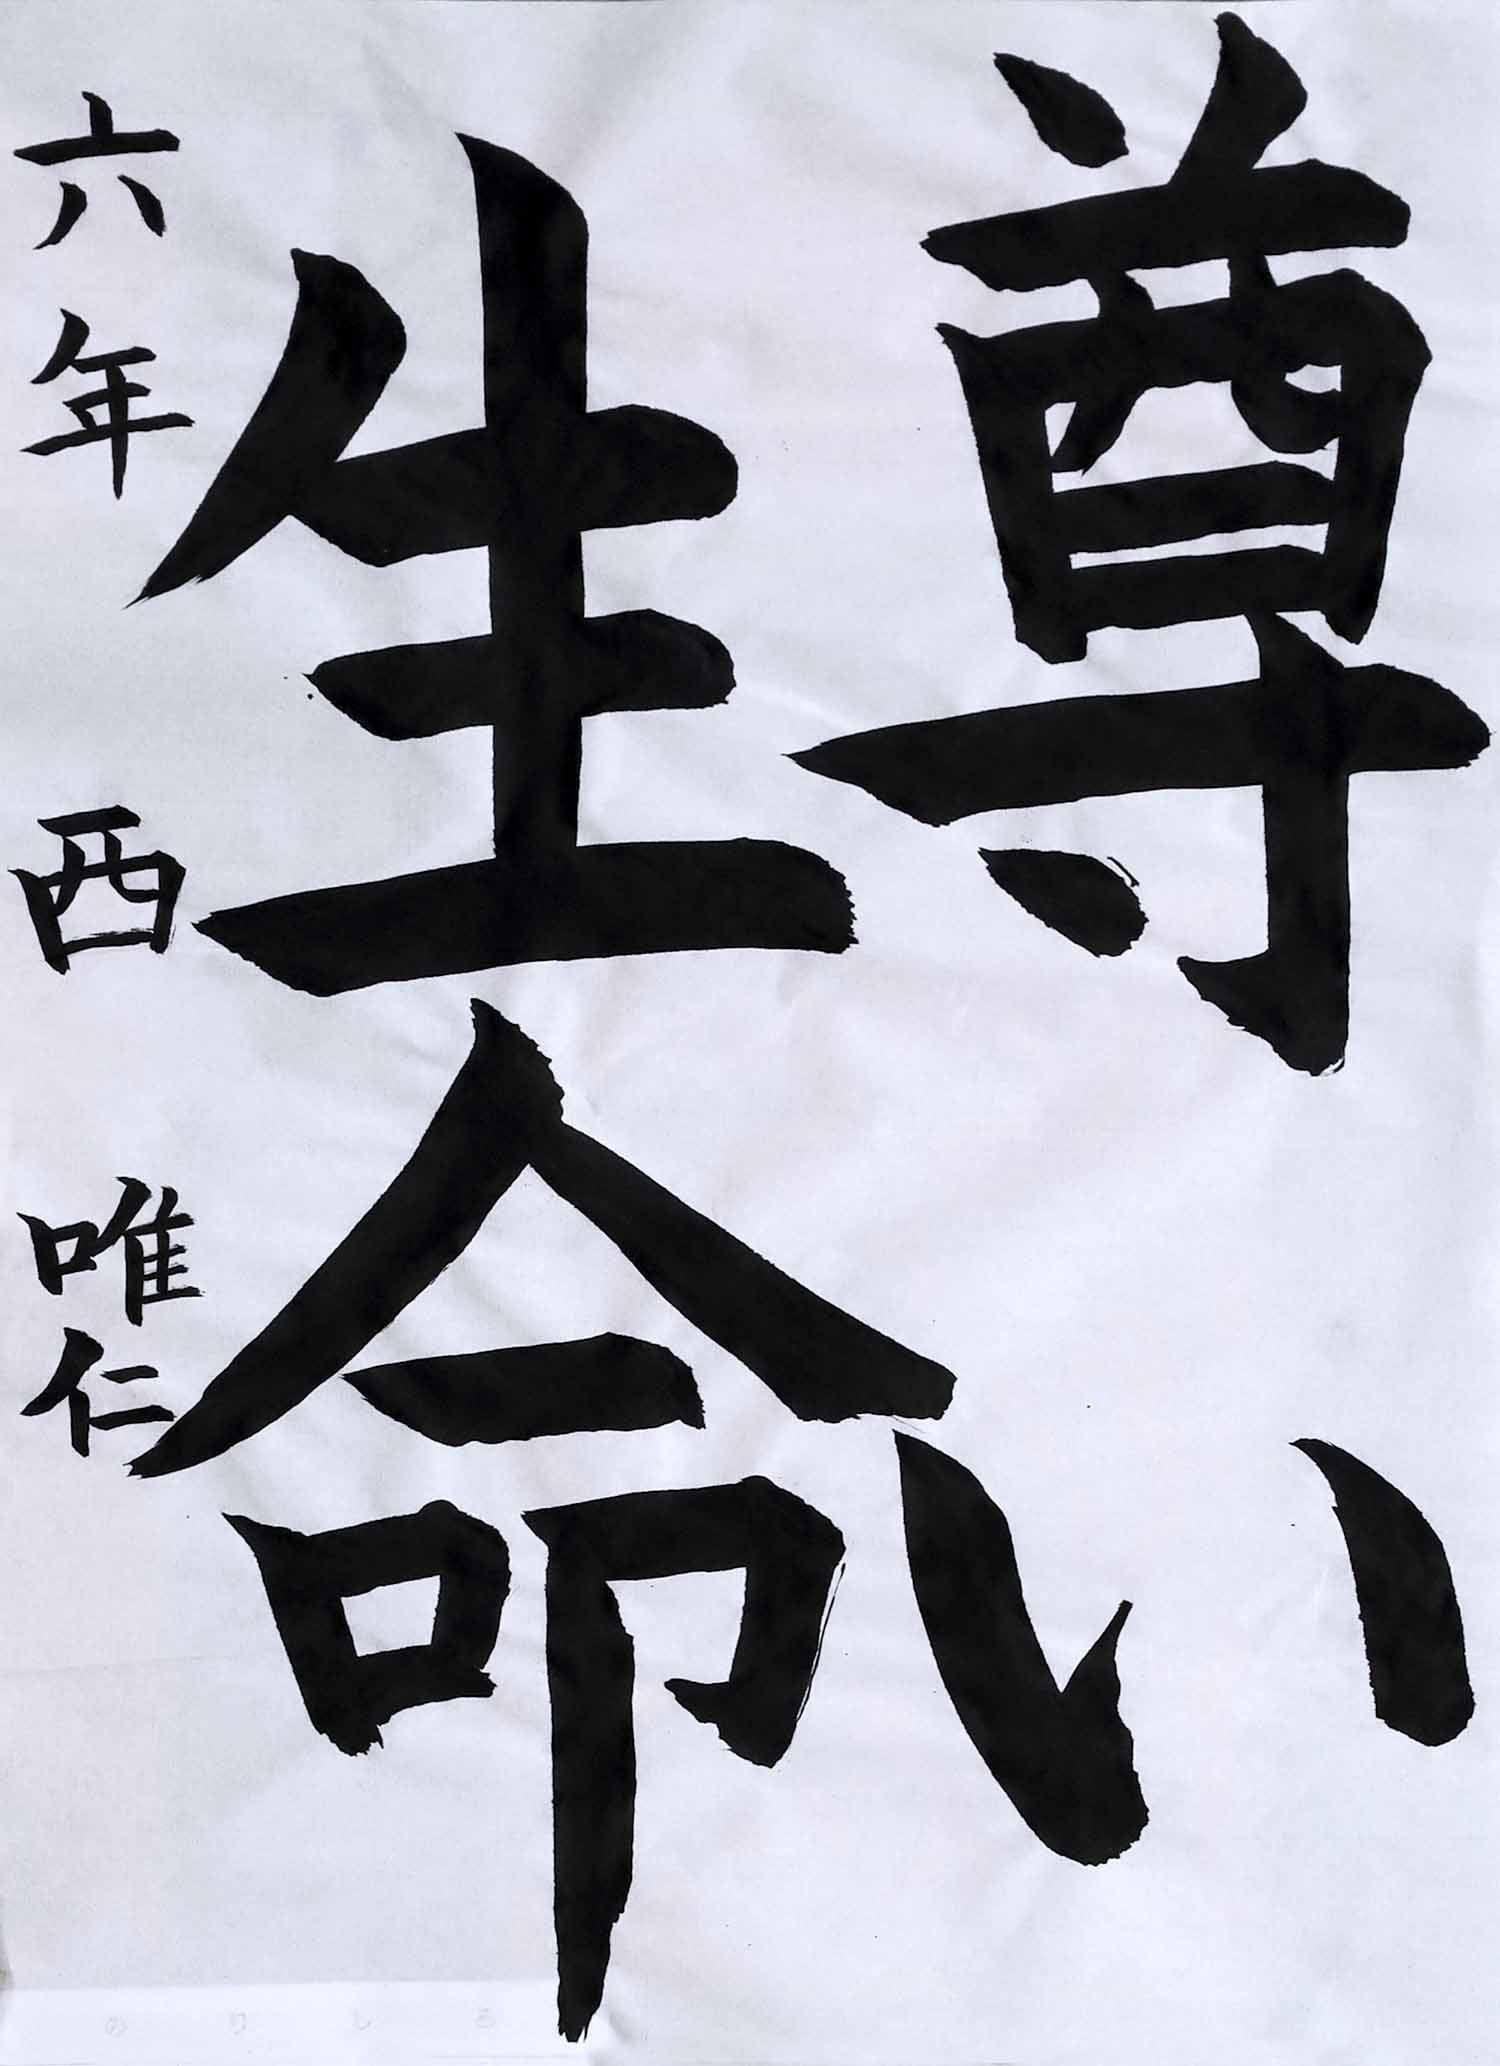 尊い
生命
六年 西 唯仁